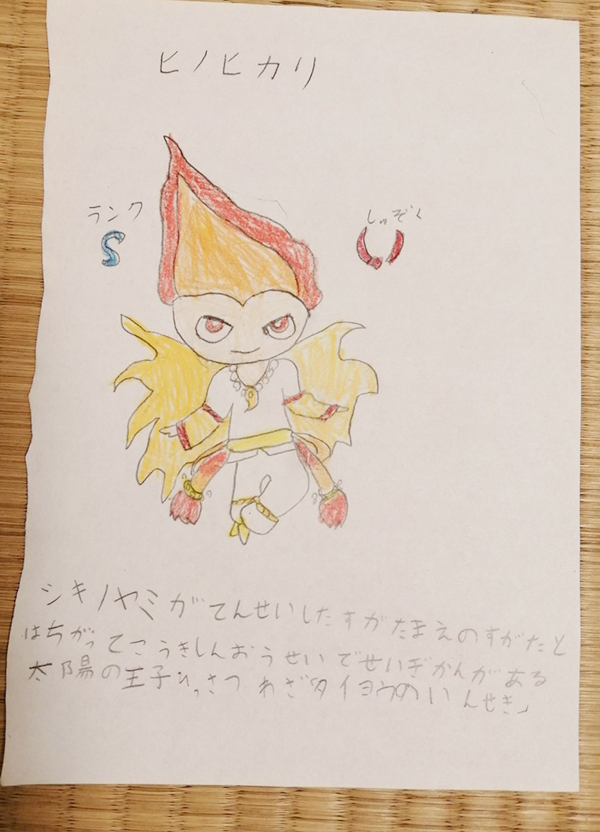 ヒノヒカリ
ランク
しゅぞく
S
シキノヤミがてんせいしたすがたまえのすがたと
はちがってこうきしんおうせいでせいぎかんがある
太陽の王子ひっさつわざ「タイヨウのいんせき」